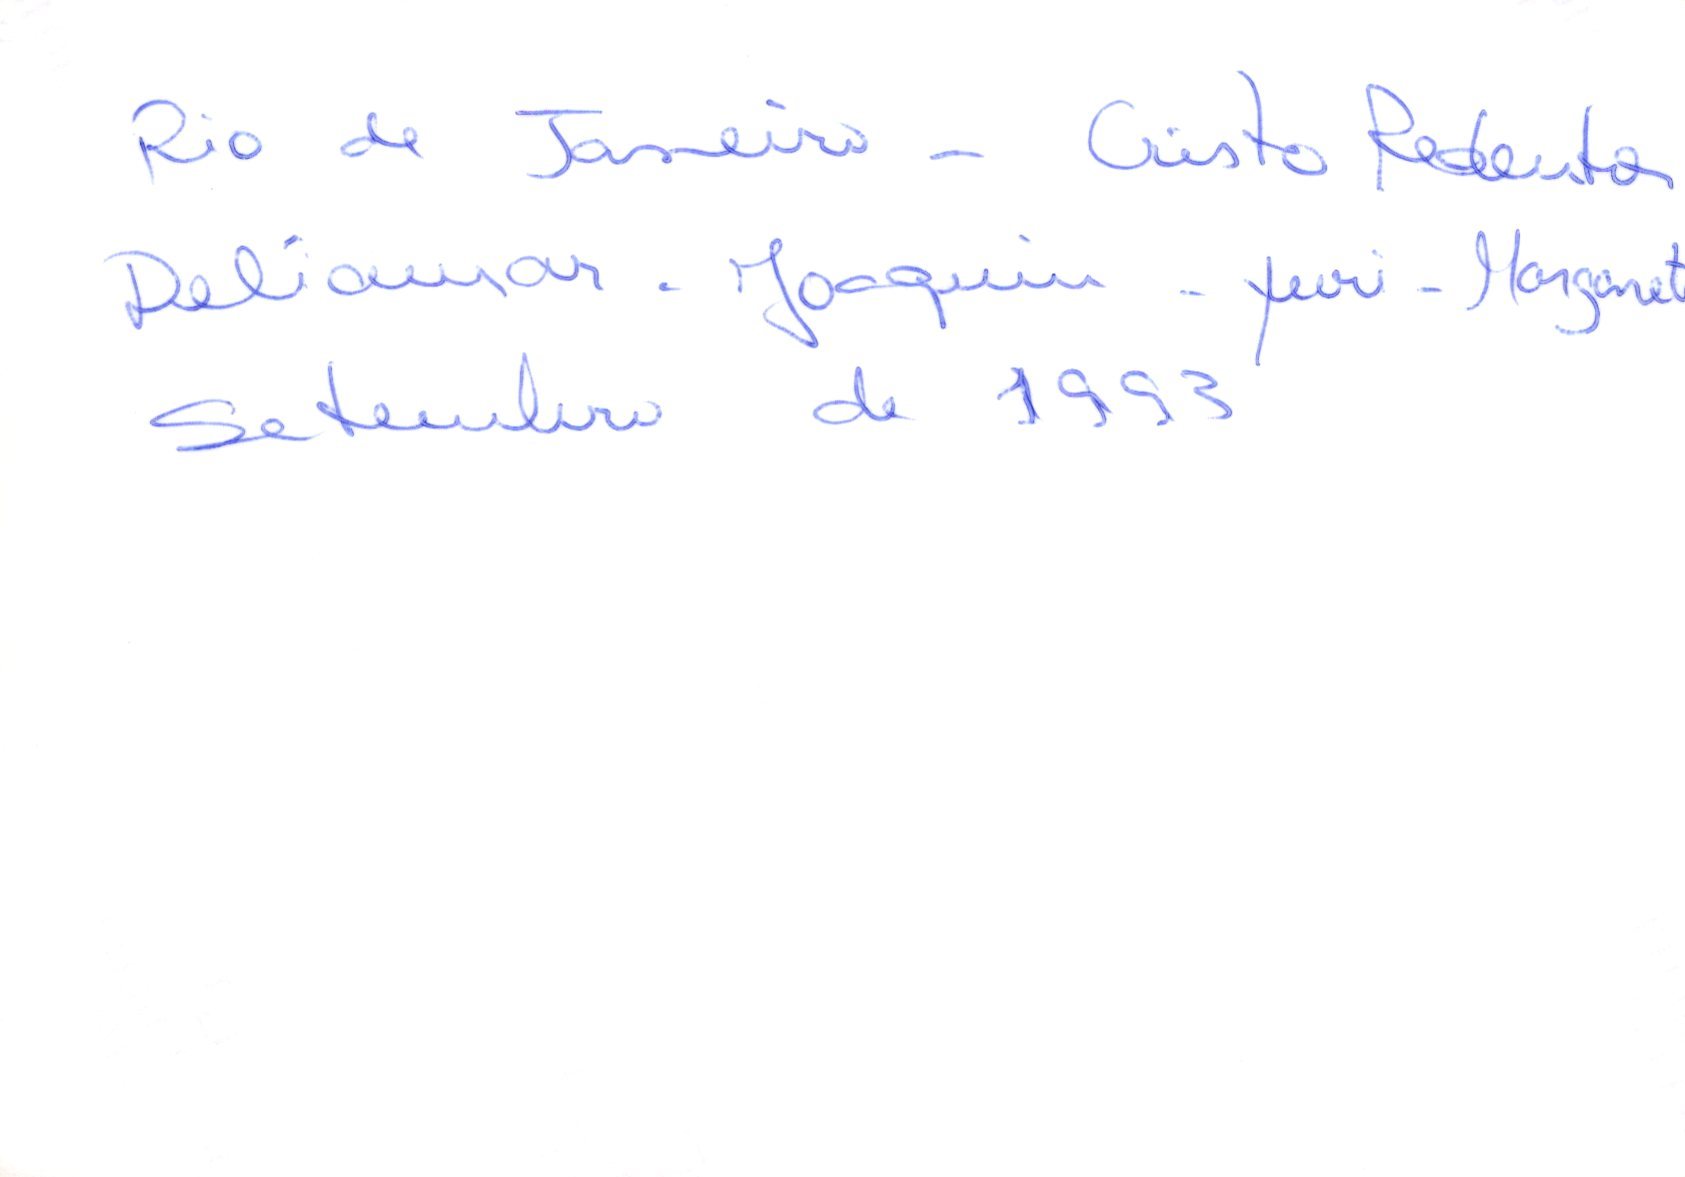 Rio de Janeiro - Cristo Redentor
Deliamar - Joaquim - Yuri - Margaret
Setembro de 1993